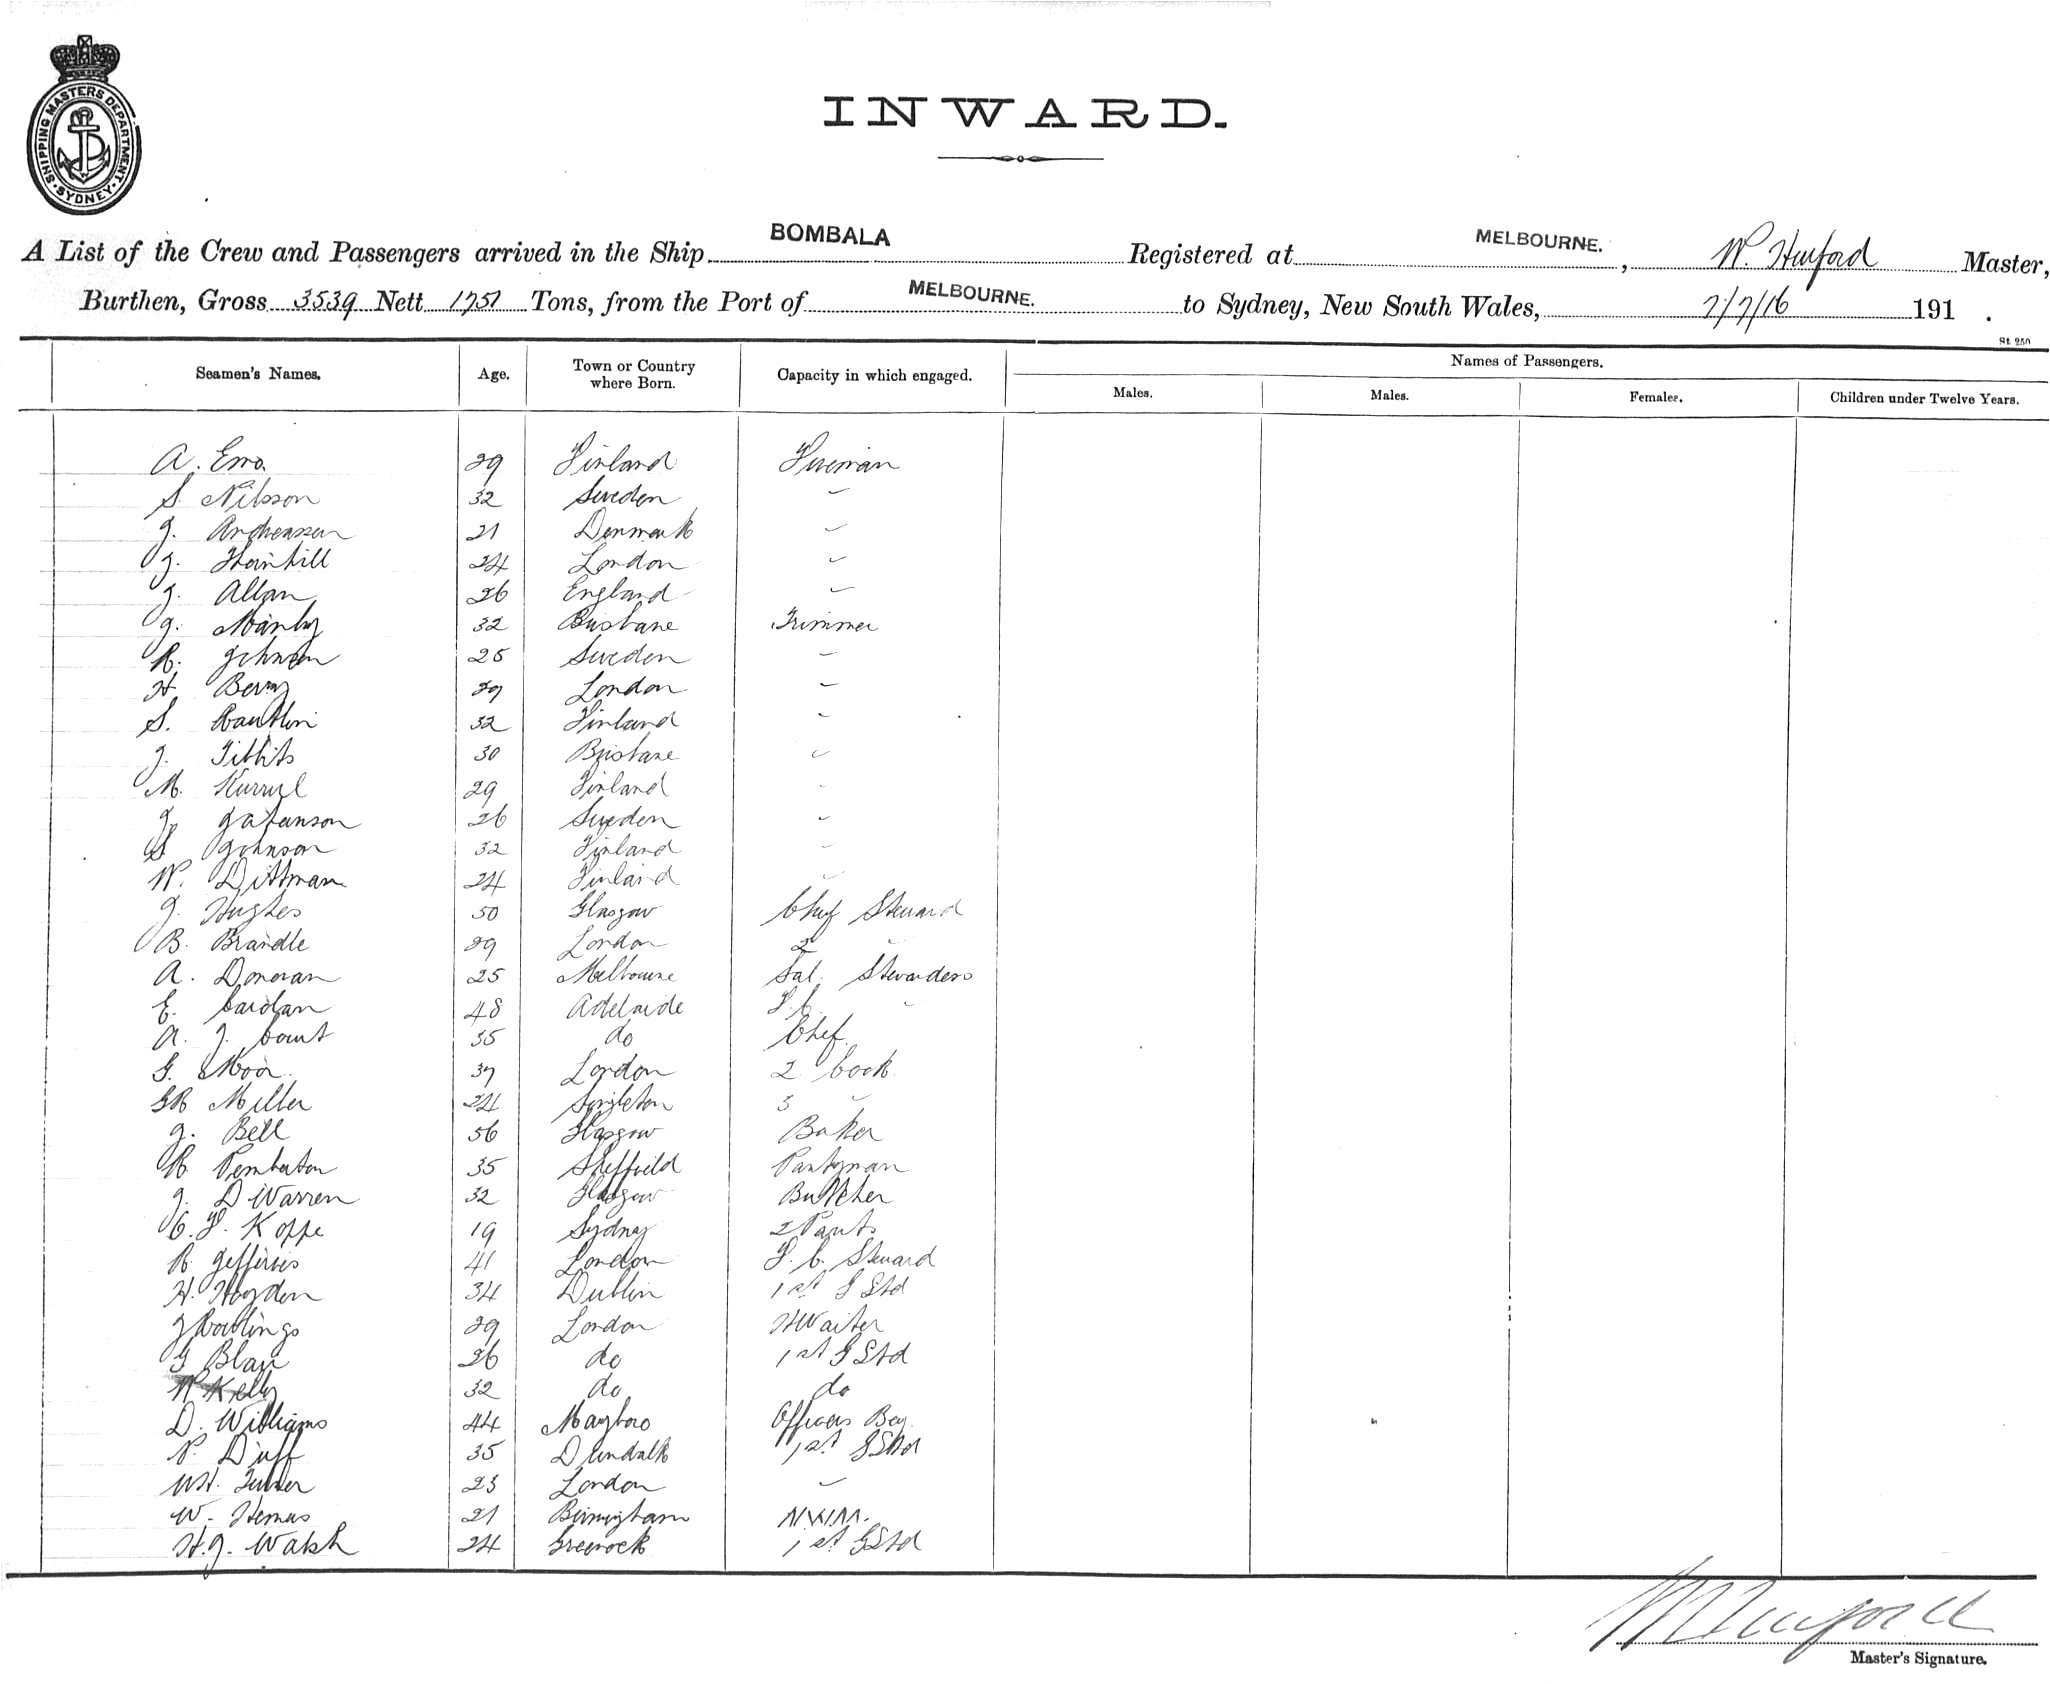 SHIPPING MASTERS DEPARTMENT
SYDNEY
INWARD.
A List of the Crew and Passengers arrived in the Ship BOMBALA Registered at MELBOURNE., W. Hurford Master,
Burthen, Gross 3539 Nett 1751 Tons, from the Port of MELBOURNE. to Sydney, New South Wales, 7/7/16 191 .
St. 250
Seamen's Names. Age. Town or Country where Born. Capacity in which engaged. Names of Passengers.
Males. Males. Females. Children under Twelve Years.
A. Emo. 29 Finland Fireman
S. Nilsson 32 Sweden "
J. Andreassen 21 Denmark "
J. Thornhill 24 London "
J. Allan 26 England "
J. Manby 32 Brisbane Trimmer
R. Johnson 25 Sweden "
H Berry 29 London "
S. 32 Finland "
J. Tibbits 30 Brisbane "
M. 29 Finland "
J. 26 Sweden "
S Johnson 32 Finland "
W. Dittman 24 Finland "
J. Hughes 50 Glasgow Chief Steward
B. Brandle 29 London 2 "
A. Donovan 25 Melbourne Sal. Stewardess
E. 48 Adelaide F.C. "
A. J. Court 35 do Chef.
G. Moor 37 London 2 Cook
GR Miller 24 Singleton 3 "
J. Bell 56 Glasgow Baker
R. Pemberton 35 Sheffield Pantryman
J. D Warren 32 Glasgow Butcher
C. F. Koppe 19 Sydney 2 Pant.
R. Jefferies 41 London F. C. Steward
H. Hayden 34 Dublin 1st G Std
J Rawlings 29 London HWaiter
G Blair 26 do 1st G Std
W Kelly 32 do do
D. Williams 44 Mayboro Officers Boy.
P. Duff 35 Dundalk 1st G Std
WH. Turner 23 London "
W. Hemus 21 Birmingham
H.J. Walsh 24 Greenock 1st GStd
Master's Signature.